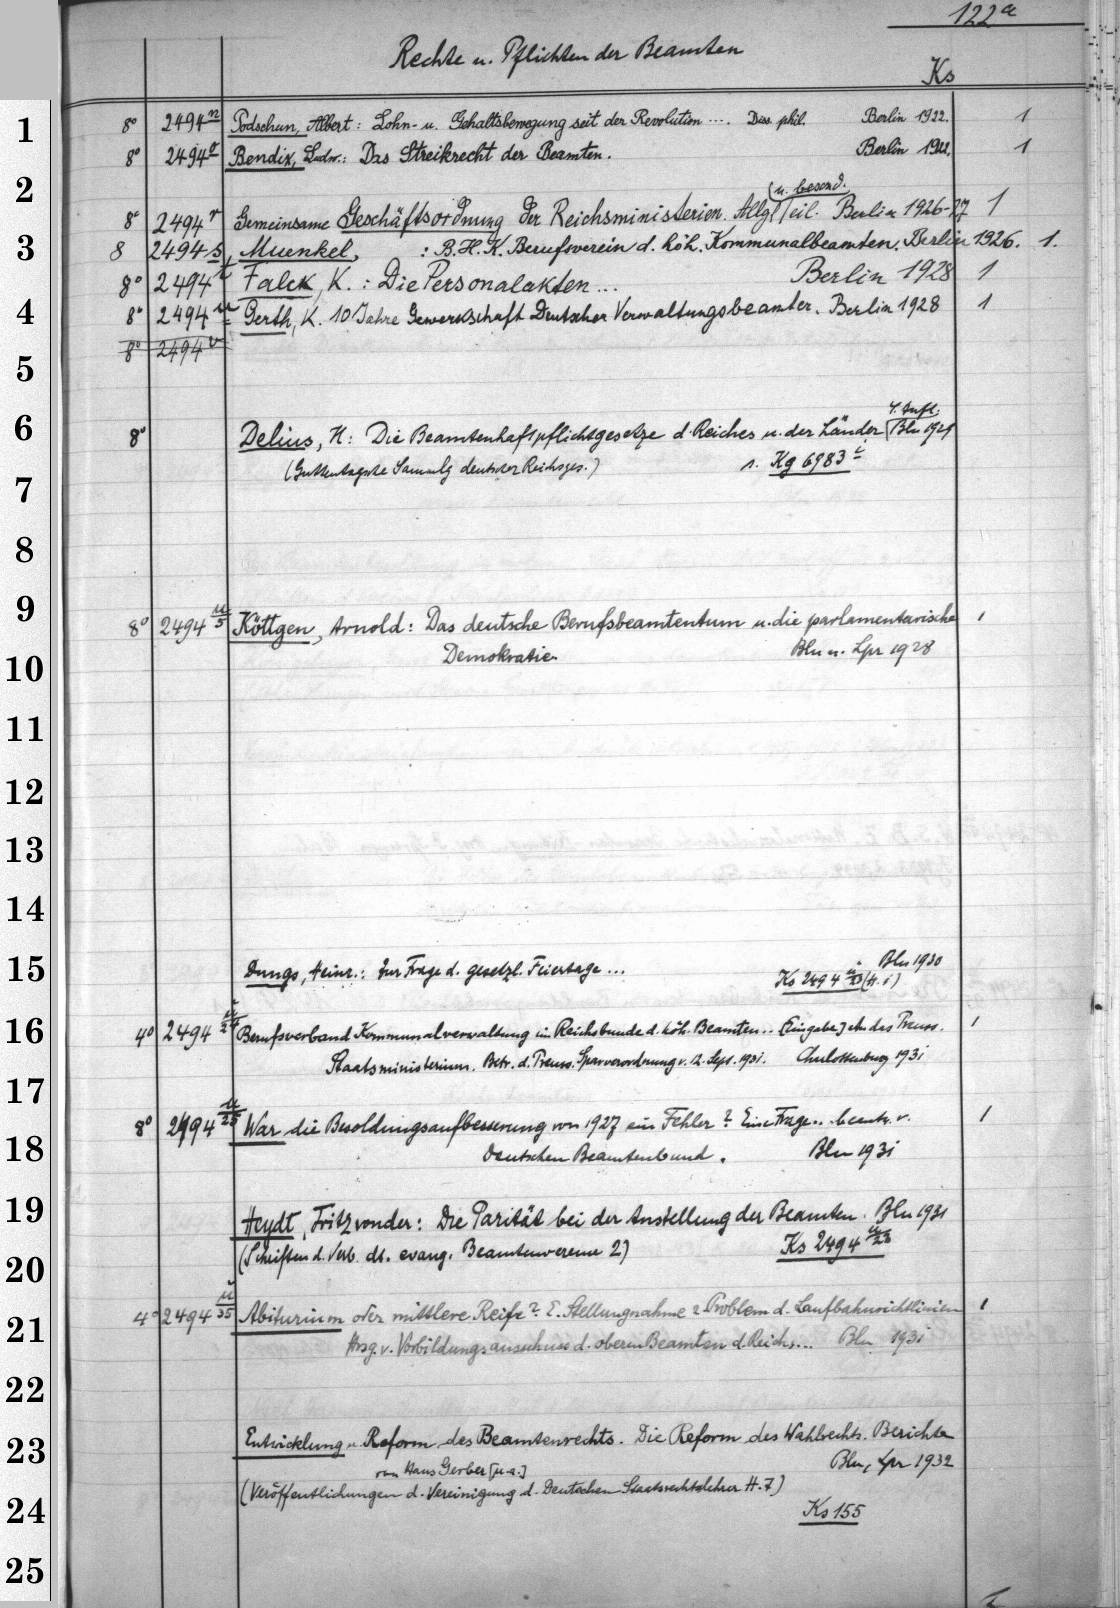 122a
Rechte u. Pflichten der Beamten
Ks
1 8° 2494n Podschun, Albert: Lohn- u. Gehaltsbewegung seit der Revolution .... Diss. phil. Berlin 1922. 1
8° 2494q Bendix, Ludw.: Das Streikrecht der Beamten. Berlin 1922. 1
2 (u. besond.
8° 2494r Gemeinsame Geschäftsordnung der Reichsministerien. Allg Teil. Berlin 1926-27 1
3 8 2494s, Muenkel, : B.H.K. Berufsverein d. höh. Kommunalbeamten. Berlin 1926. 1.
8° 2494t Falck, K. : Die Personalakten ... Berlin 1928 1
4 8° 2494u Gerth, K. 10 Jahre Gewerkschaft Deutscher Verwaltungsbeamter. Berlin 1928 1
8° 2494v
5
4. Aufl.
6 8° Delius, H: Die Beamtenhaftpflichtgesetze d. Reiches u. der Länder Bln 1929
(Guttentagsche Sammlg deutscher Reichsges.) s. Kg 6983i
7
8
9 8° 2494 u/5 Köttgen, Arnold: Das deutsche Berufsbeamtentum u. die parlamentarische 1
10 Demokratie. Bln u. Lpz 1928
11
12
13
14
15 Dungs, Heinr.: Zur Frage d. gesetzl. Feiertage ... Bln 1930
Ks 2494 u/23 (H. i)
16 4° 2494 u/24 Berufsverband Kommunalverwaltung im Reichsbunde d. höh. Beamten.. [Eingabe] an das Preuss. 1
Staatsministerium. Betr. d. Preuss. Sparverordnung v. 12. Sept. 1931. Charlottenburg 1931
17
8° 2494 u/25 War die Besoldungsaufbesserung von 1927 ein Fehler? Eine Frage.. beantw. v. 1
18 Deutschen Beamtenbund. Bln 1931
19 Heydt, Fritz von der: Die Parität bei der Anstellung der Beamten. Bln 1931
20 (Schriften d. Verb. dt. evang. Beamtenvereine 2) Ks 2494 u/28
4° 2494 u/35 Abiturium oder mittlere Reife? E. Stellungnahme z. Problem d. Laufbahnrichtlinien 1
21 Hrsg. v. Vorbildungsausschuss d. oberen Beamten d. Reichs... Bln 1931
22
23 Entwicklung u. Reform des Beamtenrechts. Die Reform des Wahlrechts. Berichte
von Hans Gerber [u.a.] Bln, Lpz 1932
(Veröffentlichungen d. Vereinigung d. Deutschen Staatsrechtslehrer H. 7)
24 Ks 155
25